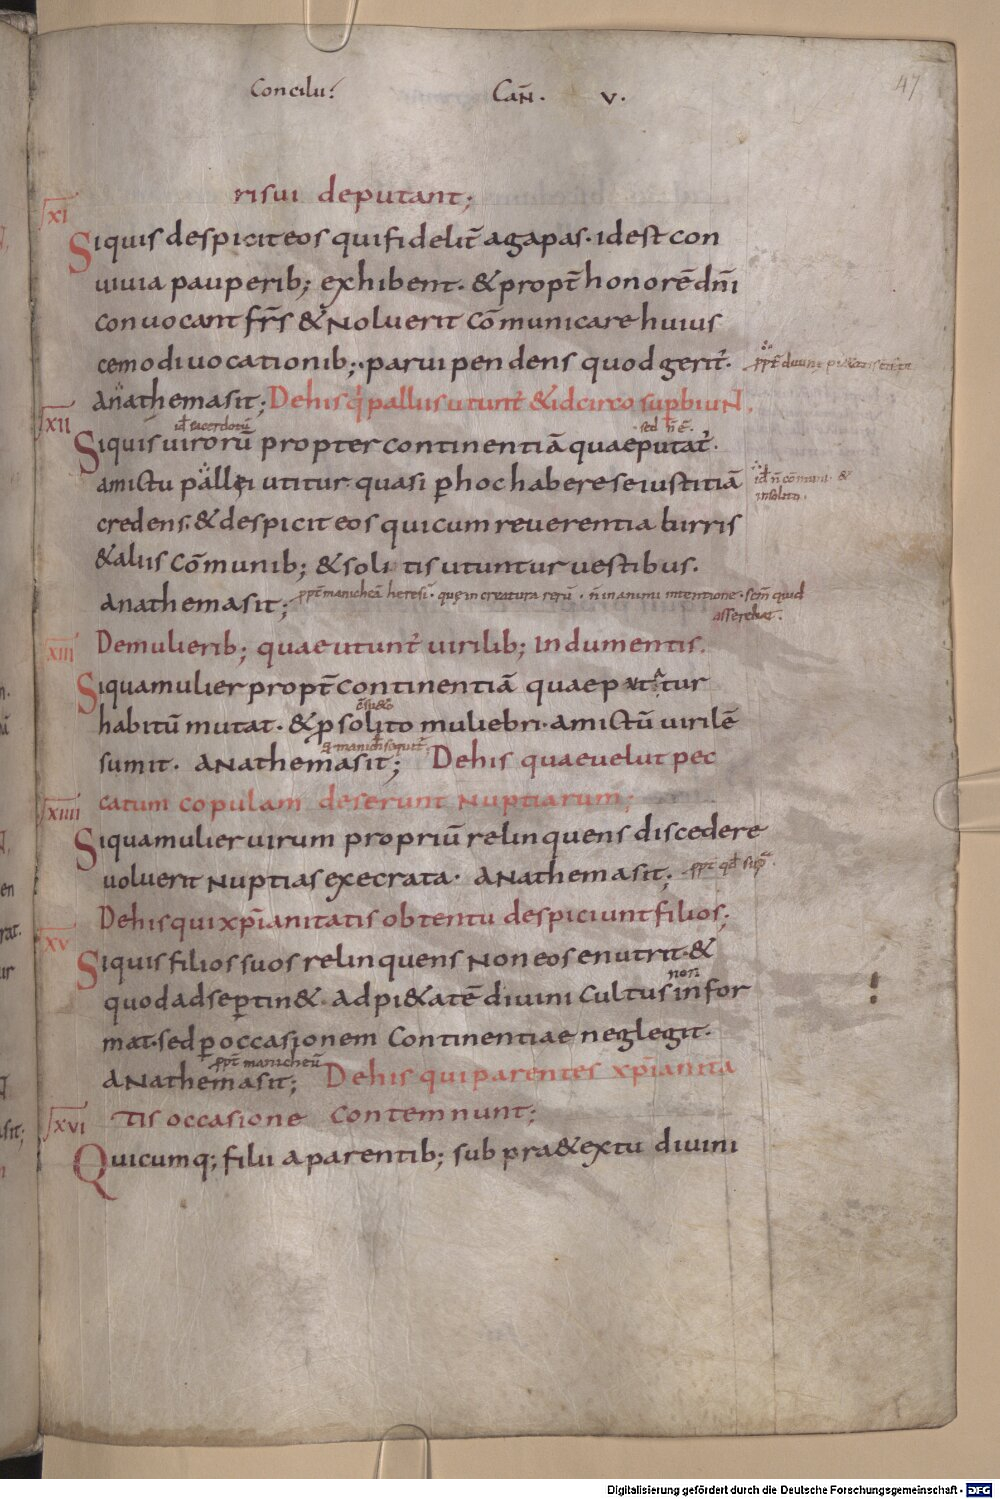 Concilii
CAÑ. V.
47
risui deputant;
XI
Siquis despicit eos qui fidelit̄ agapas· idest con
uiuia pauperib; exhibent· & propt̄ honorē dn̄i
conuocant fr̄s & noluerit cōmunicare huius
cemodi uocationib;· parui pendens quod gerit᷑·
Anathema sit; De his q᷑ palliis utunt᷑ & idcirco supbiuN.
XII
id sacerdotū
sed n̄ ē·
Siquis uirorū propter continentiā quae putat᷑·
amictu pallei utitur quasi p̱ hoc habere se iustitiā
id n̄ cōmuni· &
insolito·
credens· & despicit eos qui cum reuerentia birris
& aliis cōmunib; & soli tis utuntur uestibus·
Anathema sit; ppt̄ manicheā heresī· que in creatura rerū· n̄ in animi intentione·
asserebat·
XIII
De mulierib; quae utunt᷑ uirilib; indumentis.
Siqua mulier propt̄ continentiā quae putatur
habitū mutat· & p solito muliebri· amictū uirilē
sumit· Anathema sit; De his quae uelut pec
XIIII
catum copulam deserunt nuptiarum;
Siqua mulier uirum propriū relinquens discedere
uoluerit nuptias execrata· Anathema sit; ppt̄ qd̄ supᵃ·
De his qui xp̄ianitatis obtentu despiciunt filios;
XV
Siquis filios suos relinquens non eos enutrit· &
non
quod ad se ptin&· ad pi&atē diuini cultus infor
mat· sed p̱ occasionem continentiae neglegit·
ppt̄ manicheū
Anathema sit; De his qui parentes xp̄ianita
XVI
tis occasione contemnunt;
Quicumq; filii a parentib; sub pra&extu diuini
Digitalisierung gefördert durch die Deutsche Forschungsgemeinschaft - DFG